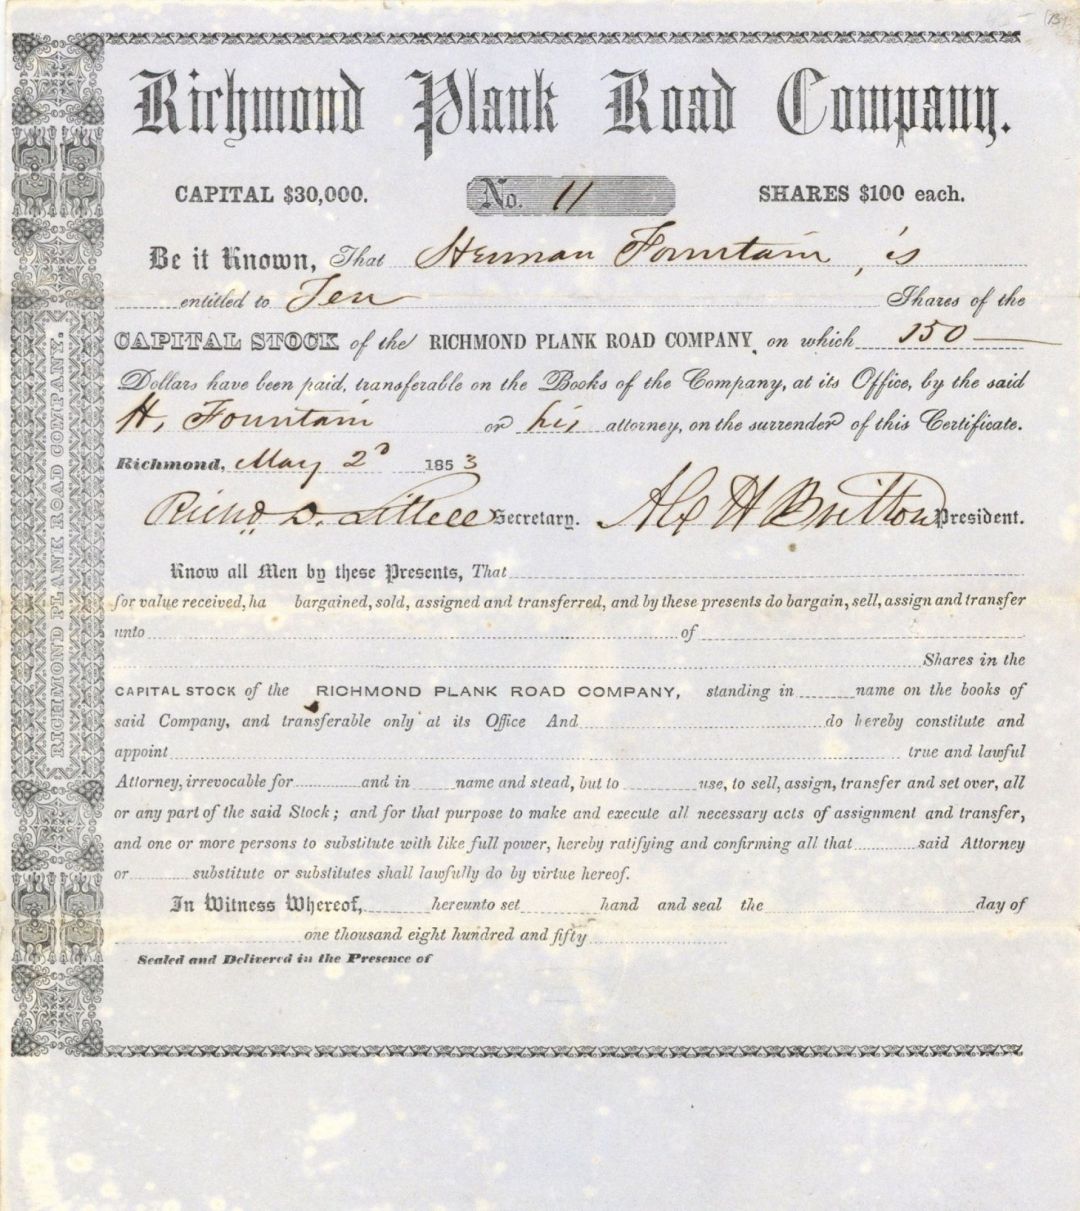 Richmond Plank Road Company.
CAPITAL $30,000. No. 11 SHARES $100 each.
Be it Known, That Herman Fountain, is
entitled to Ten Shares of the
CAPITAL STOCK of the RICHMOND PLANK ROAD COMPANY, on which 150
Dollars have been paid, transferable on the Books of the Company, at its Office, by the said
H. Fountain or his attorney, on the surrender of this Certificate.
Richmond, May 2d 1853
Richd D. Littell Secretary. Alex H Britton President.
Know all Men by these Presents, That
for value received, ha bargained, sold, assigned and transferred, and by these presents do bargain, sell, assign and transfer
unto of
Shares in the
CAPITAL STOCK of the RICHMOND PLANK ROAD COMPANY, standing in name on the books of
said Company, and transferable only at its Office And do hereby constitute and
appoint true and lawful
Attorney, irrevocable for and in name and stead, but to use, to sell, assign, transfer and set over, all
or any part of the said Stock; and for that purpose to make and execute all necessary acts of assignment and transfer,
and one or more persons to substitute with like full power, hereby ratifying and confirming all that said Attorney
or substitute or substitutes shall lawfully do by virtue hereof.
In Witness Whereof, hereunto set hand and seal the day of
one thousand eight hundred and fifty
Sealed and Delivered in the Presence of
RICHMOND PLANK ROAD COMPANY.